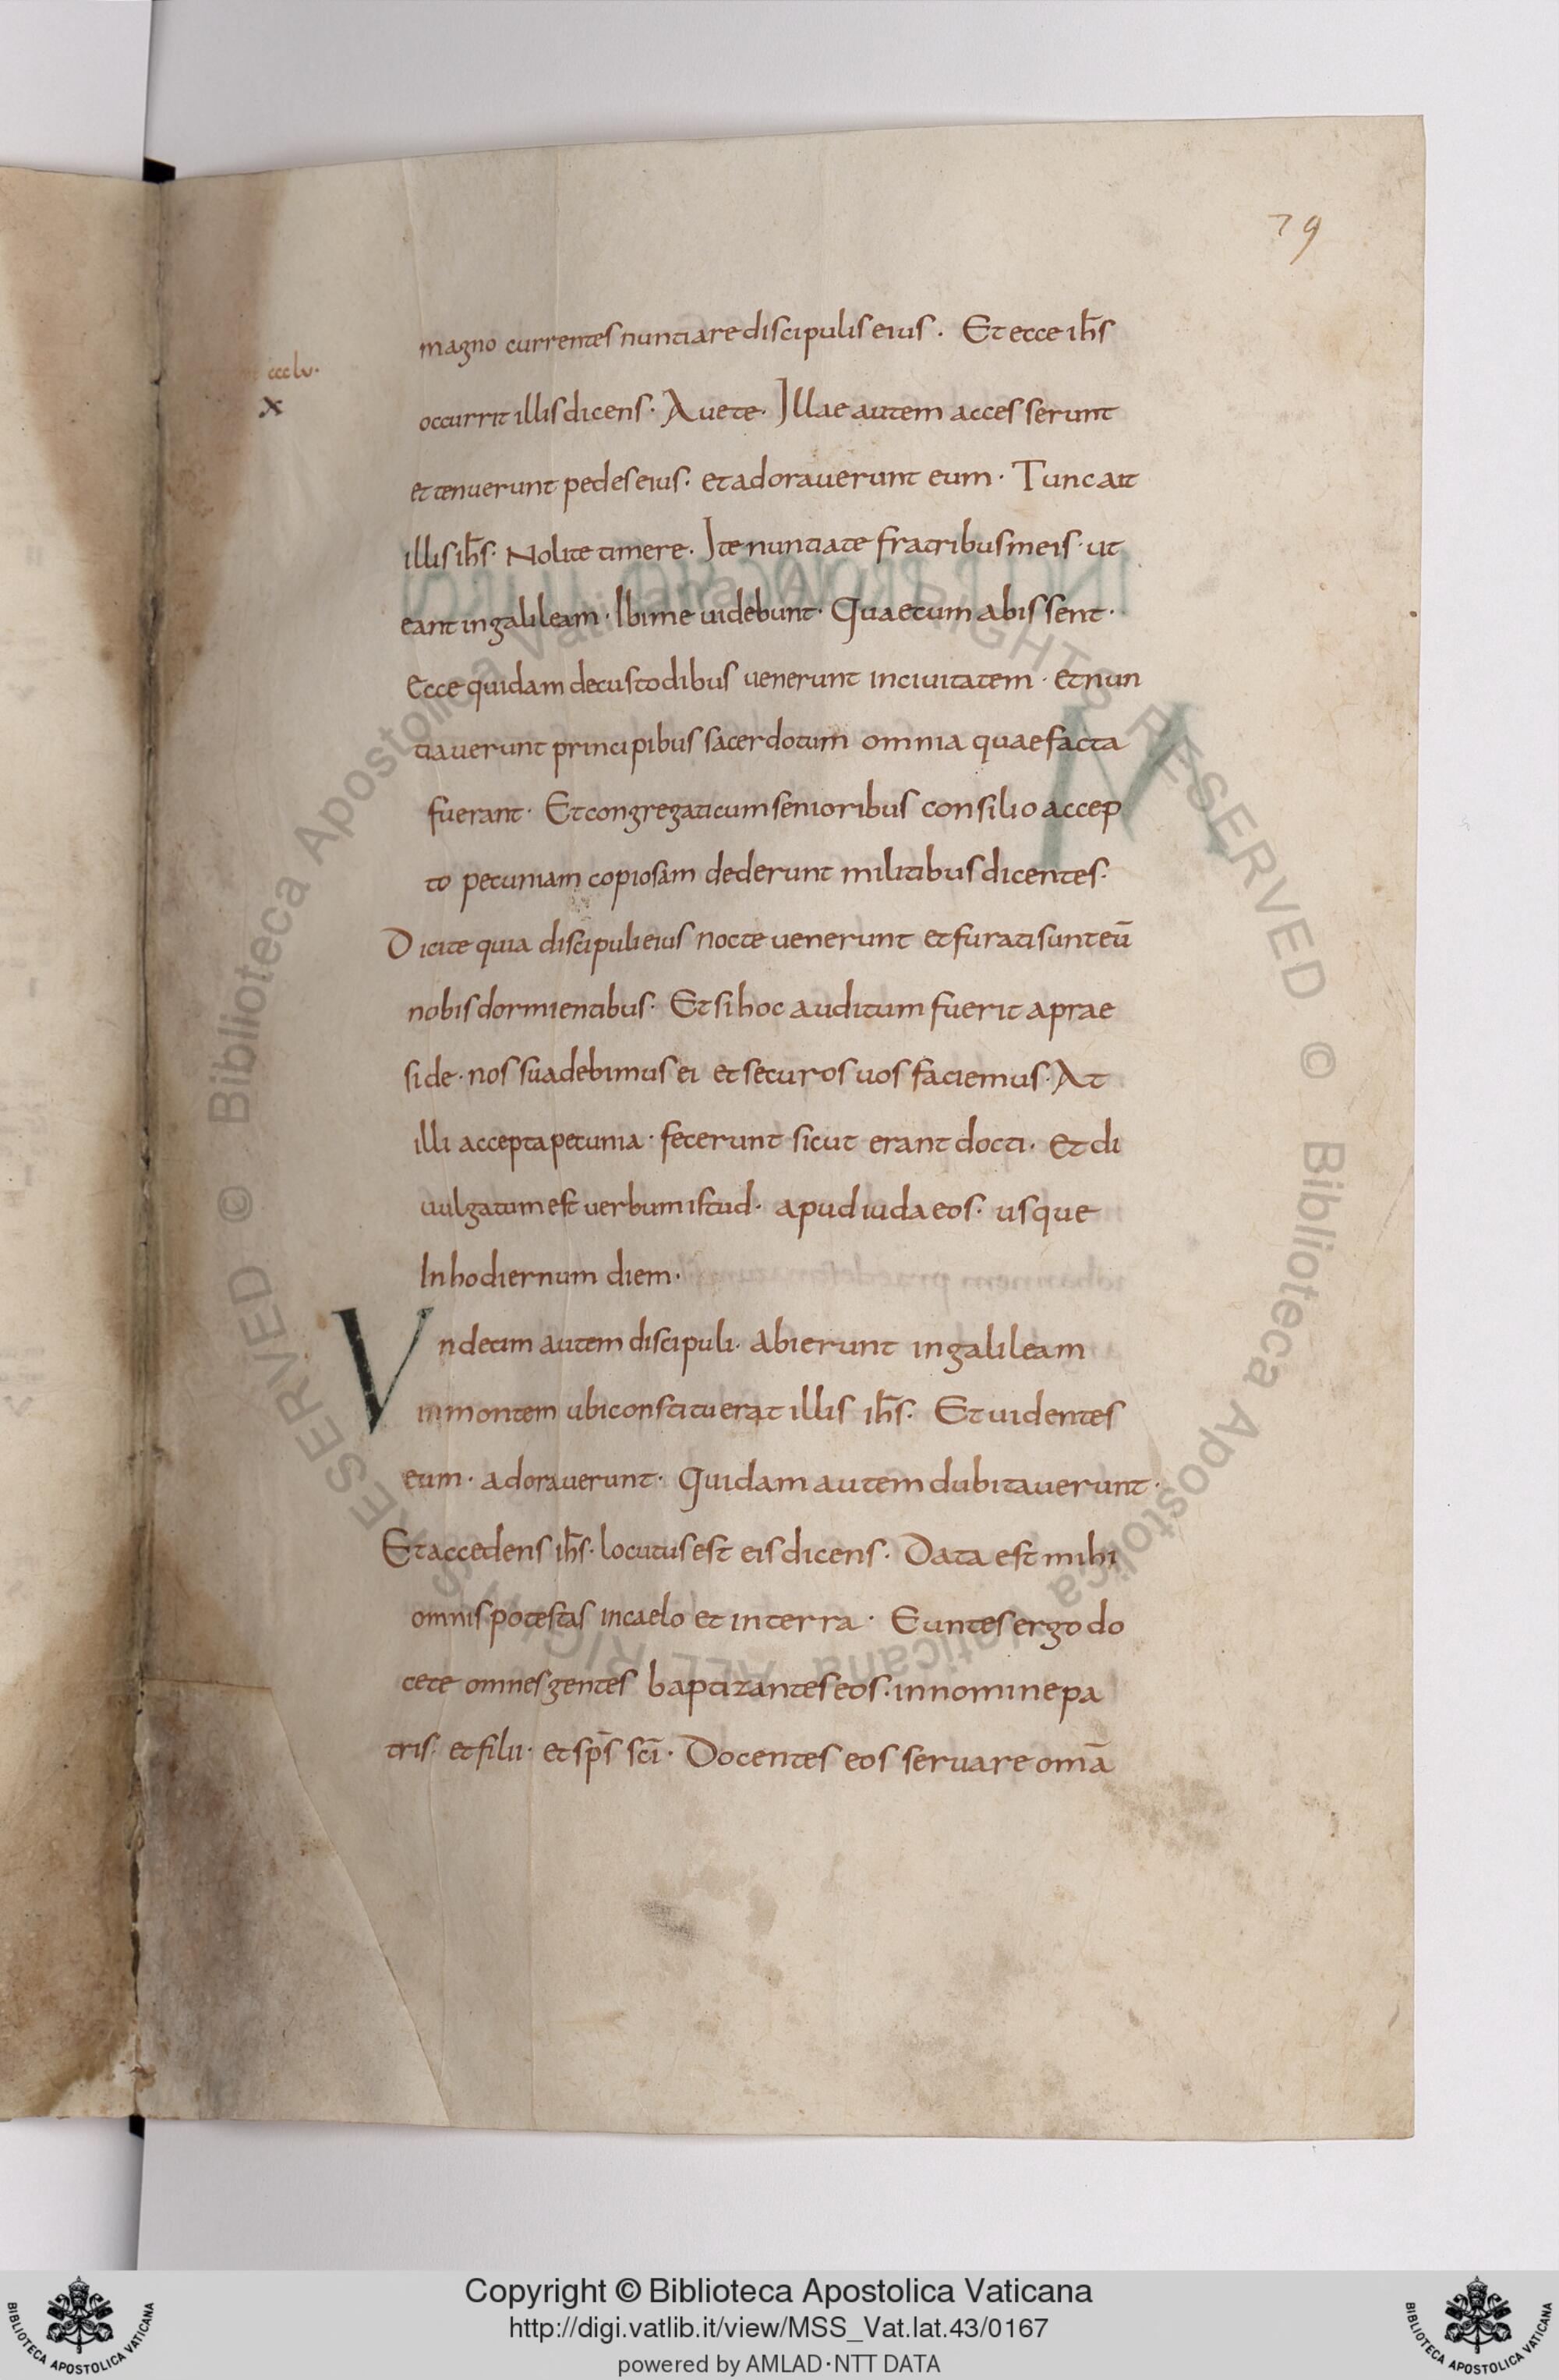 79
magno currentes nuntiare discipulis eius · Et ecce ih̅s
ccclv·
x
occurrit illis dicens · Avete · Illae autem accesserunt
et tenuerunt pedes eius · et adoraverunt eum · Tunc ait
illis ih̅s · Nolite timere · Ite nuntiate fratribus meis · ut
eant in galileam · Ibi me videbunt · Quae cum abissent ·
Ecce quidam de custodibus venerunt in civitatem · et nun
tiaverunt principibus sacerdotum omnia quae facta
fuerant · Et congregati cum senioribus consilio accep
to pecuniam copiosam dederunt militibus dicentes ·
Dicite quia discipuli eius nocte venerunt et furati sunt eū
nobis dormientibus · Et si hoc auditum fuerit a prae
side · nos suadebimus ei et securos vos faciemus · At
illi accepta pecunia · fecerunt sicut erant docti · Et di
vulgatum est verbum istud · apud iudaeos · usque
In hodiernum diem ·
Vndecim autem discipuli · abierunt in galileam
in montem ubi constituerat illis ih̅s · Et videntes
eum · adoraverunt · Quidam autem dubitaverunt ·
Et accedens ih̅s · locutus est eis dicens · Data est mihi
omnis potestas in caelo et in terra · Euntes ergo do
cete omnes gentes baptizantes eos · in nomine pa
tris · et filii · et sp̅s sc̅i · Docentes eos servare omā
© Biblioteca Apostolica Vaticana ALL RIGHTS RESERVED © Biblioteca Apostolica Vaticana ALL RIGHTS RESERVED
BIBLIOTECA APOSTOLICA VATICANA
Copyright © Biblioteca Apostolica Vaticana
http://digi.vatlib.it/view/MSS_Vat.lat.43/0167
powered by AMLAD·NTT DATA
BIBLIOTECA APOSTOLICA VATICANA